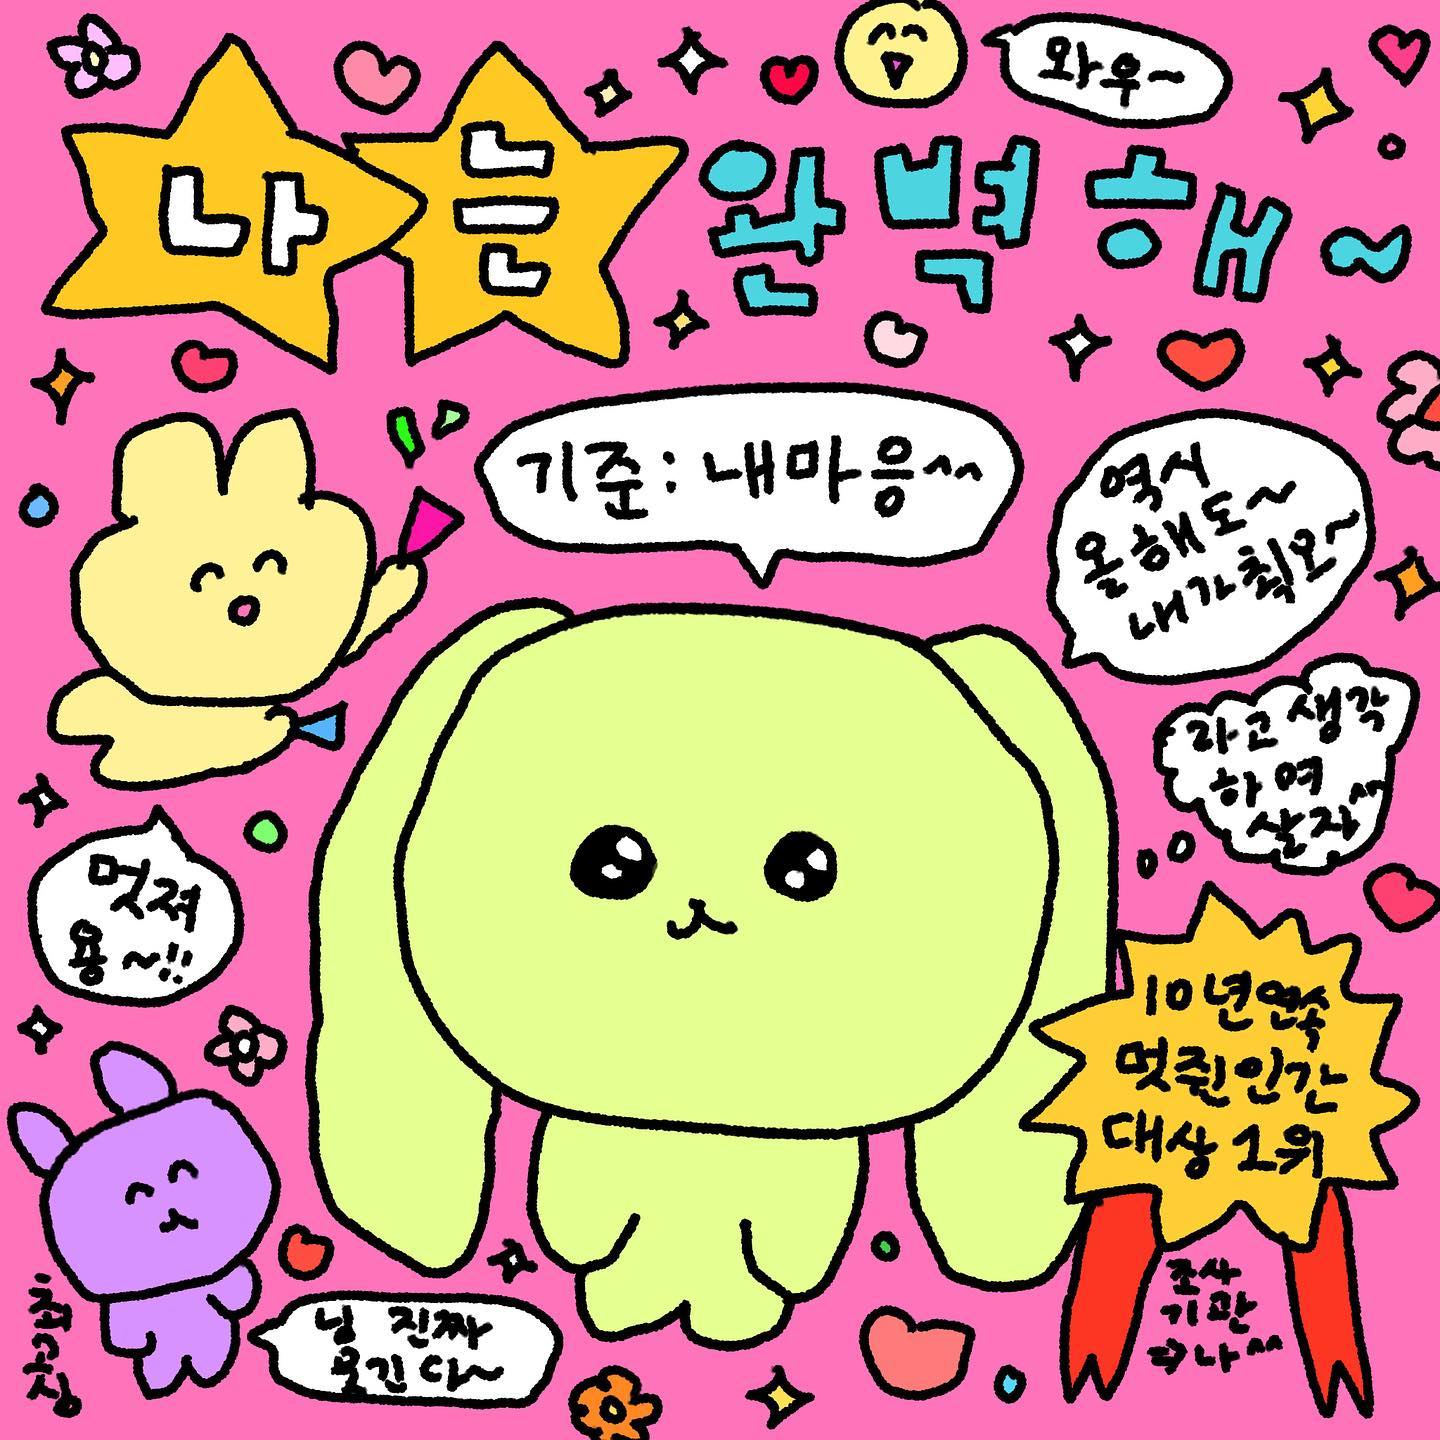 와우~
나는 완벽해~
기준: 내마음^^
역시
올해도~
내가최오~
라고 생각
하며
살자^^
멋져
용~!!
10년연속
멋쥔인간
대상 1위
조사
기관
⇒나^^
님 진짜
웃긴다~
최고심